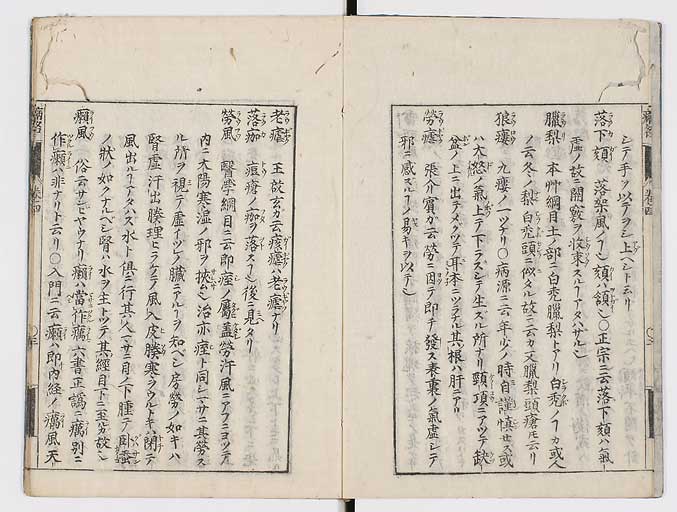 シテ手ヲ以テヲシ上ヘシト云リ
落下頦 落架風ノヿ也頦ハ頷也〇正宗ニ云落下頦ハ氣
虚ノ故ニ関竅ヲ收束スルヿアタハサル也
臘梨 本艸綱目土ノ部ニ白禿臘梨トアリ白禿ノヿカ或人
ノ云冬ノ梨白禿頭ニ似タル故ニ云カ又臘梨頭瘡トモ云リ
狼瘻 九瘻ノ一ツナリ〇病源ニ云年少ノ時自謹慎セス或
ハ大怒ノ氣上テ下ラスシテ生スル所ナリ頸項ニアツテ缺
盆ノ上ニ出テメクツテ耳本ニツラナル其根ハ肝ニアリ
勞瘧 張介賓カ云勞ニ因テ即チ發ス表裏ノ氣虚シテ
邪ニ感スルノ易キヲ以テ也
老瘧 王故玄カ云痎瘧ハ老瘧ナリ
落痂 痘瘡ノ痂ヲ落スヿ也後ニ見タリ
勞風 醫學綱目ニ云即痙ノ屬蓋勞汗風ニアタ
内ニ太陽寒湿ノ邪ヲ挾ム也治亦痙ト同シマサニ其勞ス
ル所ヲ視テ虚イツレノ臓ニアルヿヲ知ベシ
腎虚汗出腠理ヒラケテ風入皮腠寒ヲウルトキハ閉テ
風出ルヿアタハス水ト俱ニ行其人マサニ目ノ下腫テ臥蚕
ノ状ノ如クナルベシ腎ハ水ヲ主トツテ其經目下ニ至ル故也
癩風 俗云サンビヤウナリ癩ハ當作癘六書正譌ニ癘別ニ
作癩ハ非ナリト云リ〇入門ニ云癩ハ即内経ノ癘風天